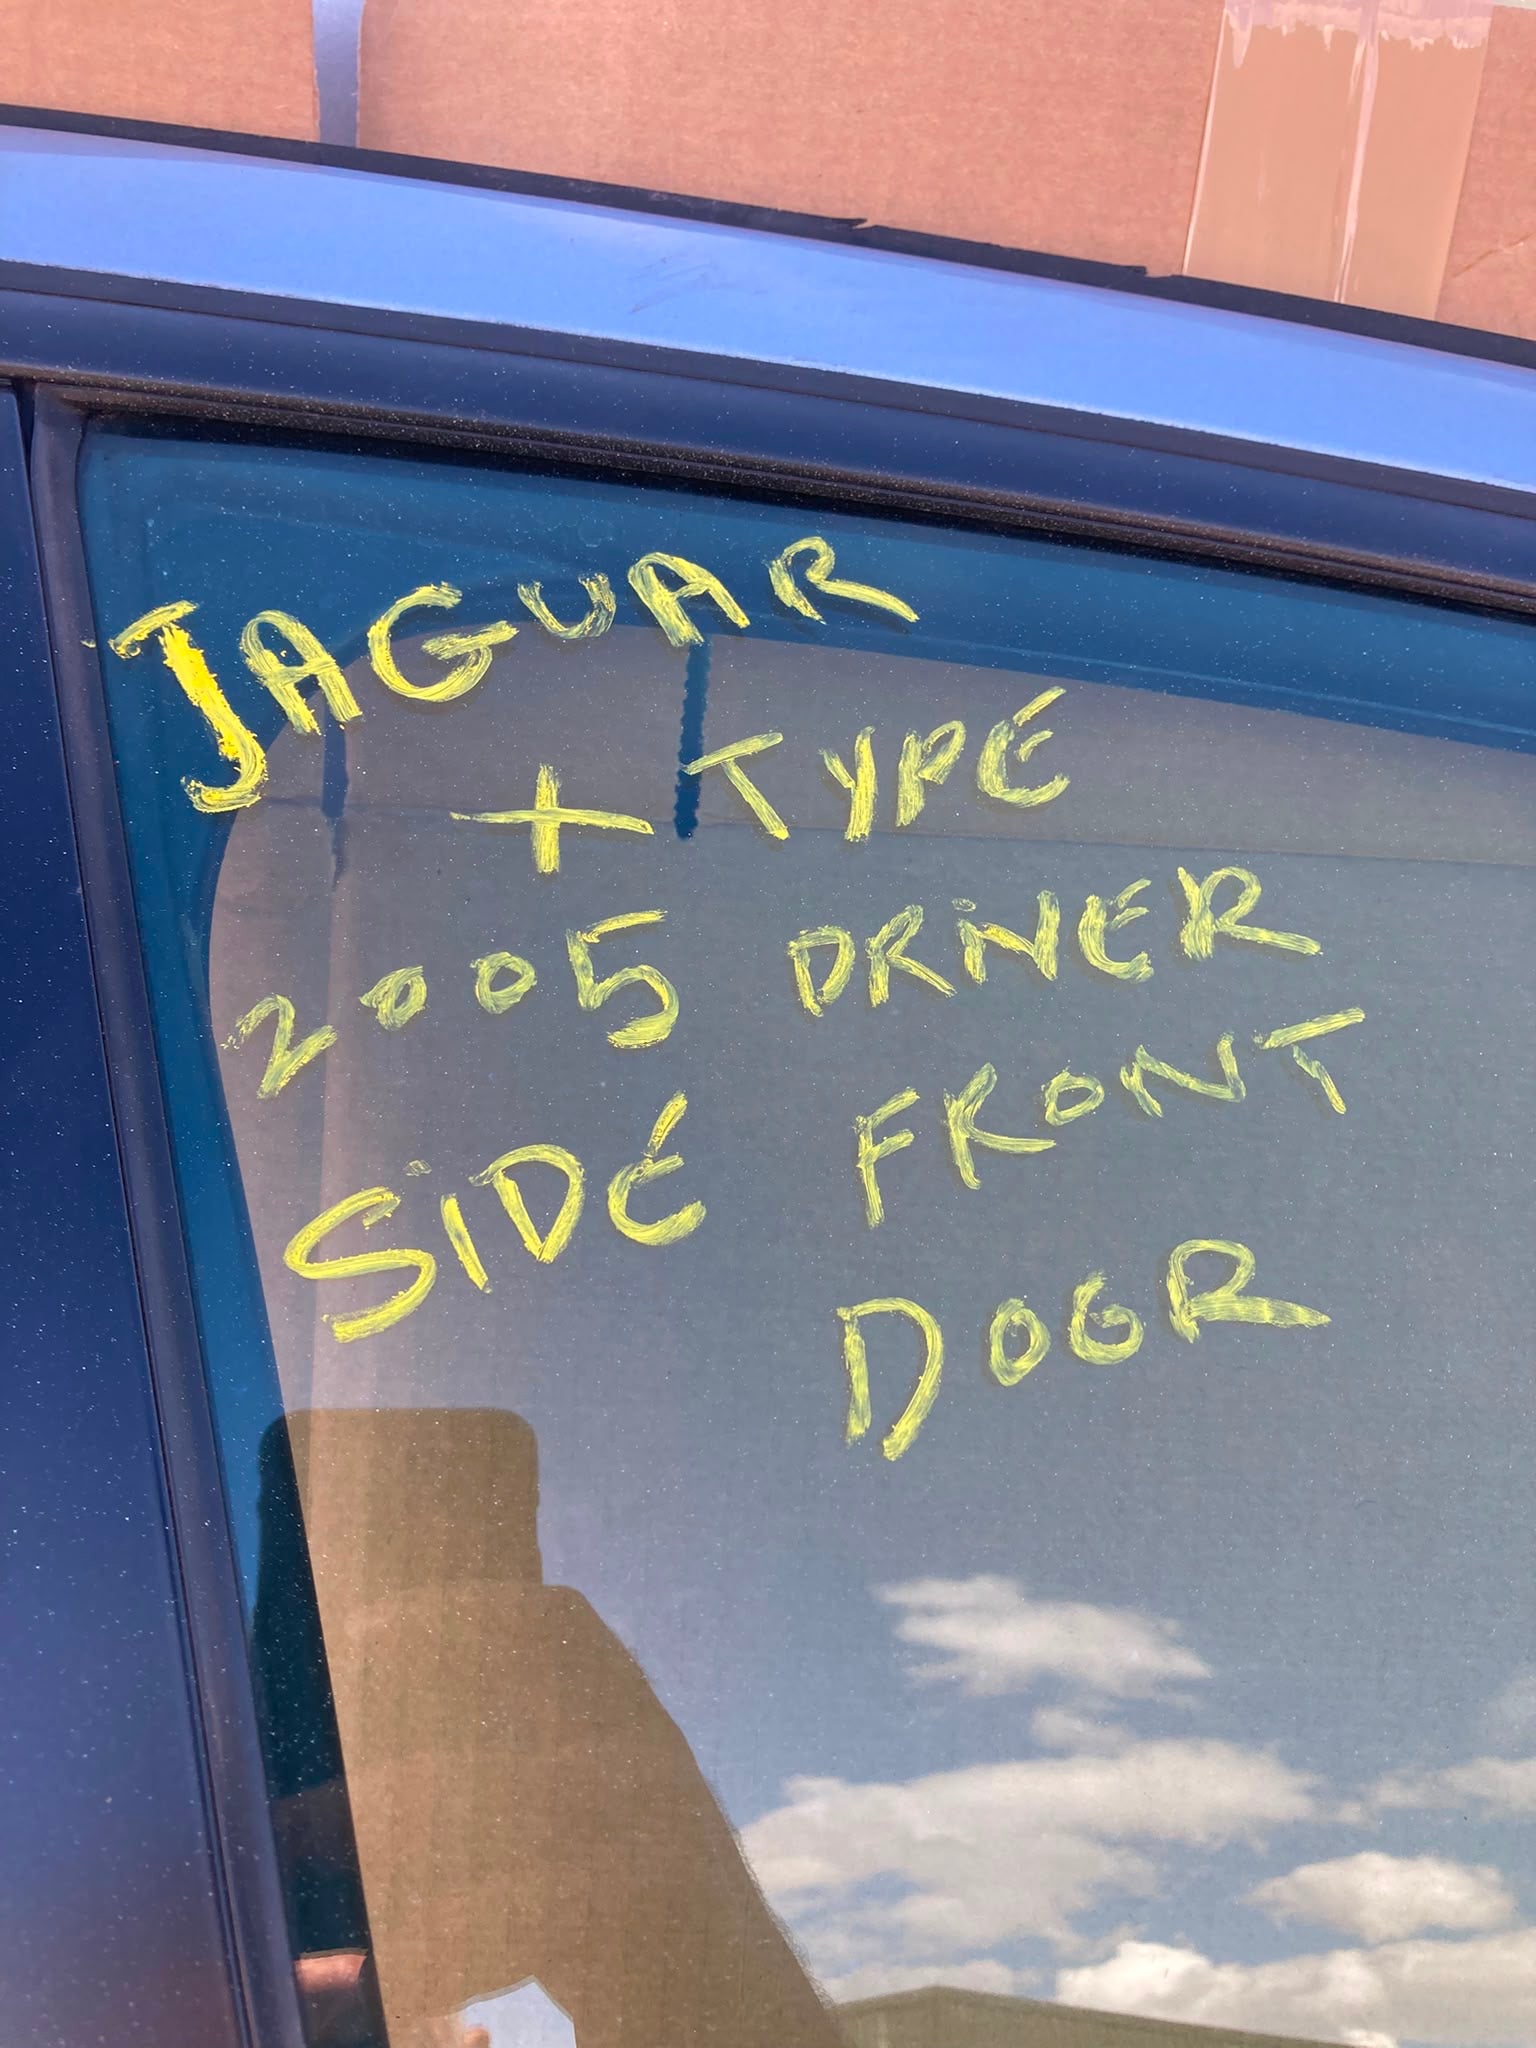 JAGUAR
X TYPE
2005 DRIVER
SIDE FRONT
DOOR